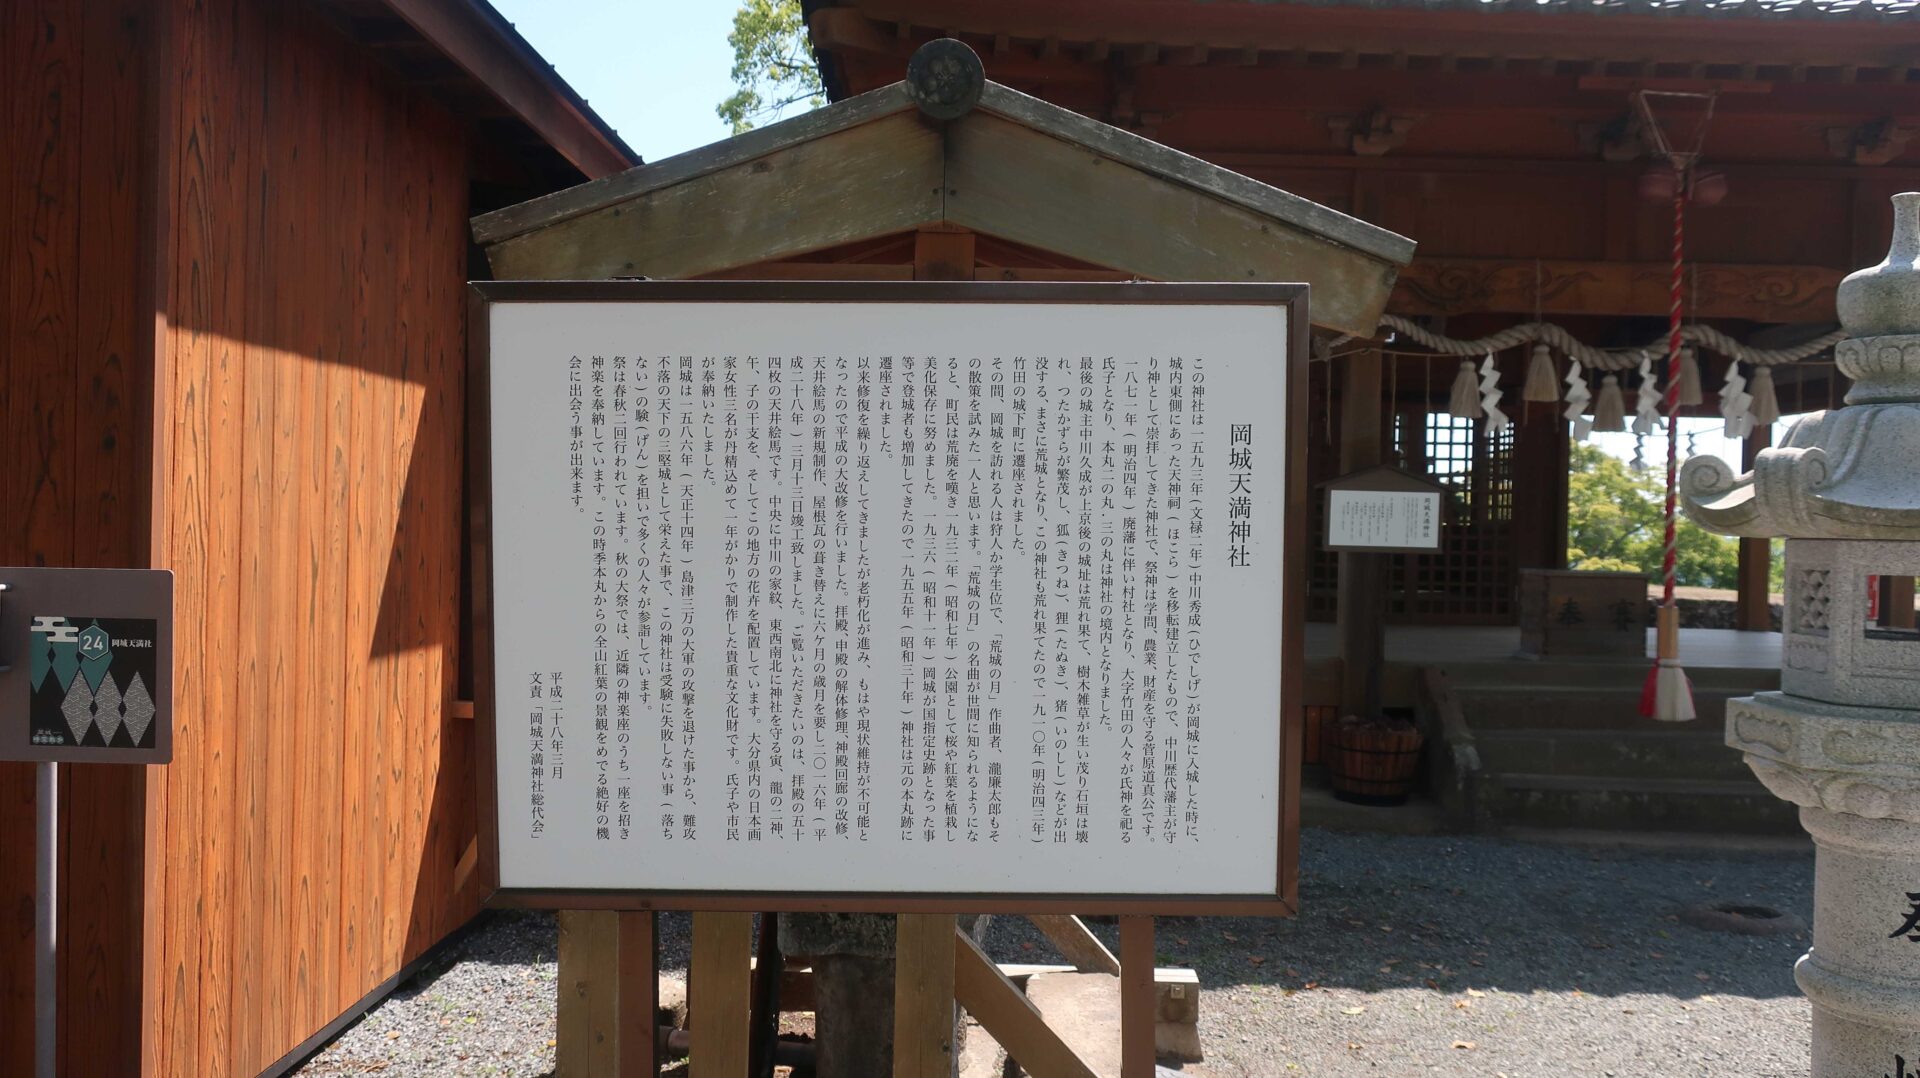 岡城天満神社
この神社は一五九三年(文禄二年)中川秀成(ひでしげ)が岡城に入城した時に、
城内東側にあった天神祠(ほこら)を移転建立したもので、中川歴代藩主が守
り神として崇拝してきた神社で、祭神は学問、農業、財産を守る菅原道真公です。
一八七一年(明治四年)廃藩に伴い村社となり、大字竹田の人々が氏神を祀る
氏子となり、本丸二の丸・三の丸は神社の境内となりました。
最後の城主中川久成が上京後の城址は荒れ果て、樹木雑草が生い茂り石垣は壊
れ、つたかずらが繁茂し、狐(きつね)、狸(たぬき)、猪(いのしし)などが出
没する、まさに荒城となり、この神社も荒れ果てたので一九一〇年(明治四三年)
竹田の城下町に遷座されました。
その間、岡城を訪れる人は狩人か学生位で、「荒城の月」作曲者、瀧廉太郎もそ
の散策を試みた一人と思います。「荒城の月」の名曲が世間に知られるようにな
ると、町民は荒廃を嘆き一九三二年(昭和七年)公園として桜や紅葉を植栽し
美化保存に努めました。一九三六(昭和十一年)岡城が国指定史跡となった事
等で登城者も増加してきたので一九五五年(昭和三十年)神社は元の本丸跡に
遷座されました。
以来修復を繰り返えしてきましたが老朽化が進み、もはや現状維持が不可能と
なったので平成の大改修を行いました。拝殿、申殿の解体修理、神殿回廊の改修、
天井絵馬の新規制作、屋根瓦の葺き替えに六ケ月の歳月を要し二〇一六年(平
成二十八年)三月十三日竣工致しました。ご覧いただきたいのは、拝殿の五十
四枚の天井絵馬です。中央に中川の家紋、東西南北に神社を守る寅、龍の二神、
午、子の干支を、そしてこの地方の花卉を配置しています。大分県内の日本画
家女性三名が丹精込めて一年がかりで制作した貴重な文化財です。氏子や市民
が奉納いたしました。
岡城は一五八六年(天正十四年)島津三万の大軍の攻撃を退けた事から、難攻
不落の天下の三堅城として栄えた事で、この神社は受験に失敗しない事(落ち
ない)の験(げん)を担いで多くの人々が参詣しています。
祭は春秋二回行われています。秋の大祭では、近隣の神楽座のうち一座を招き
神楽を奉納しています。この時季本丸からの全山紅葉の景観をめでる絶好の機
会に出会う事が出来ます。
平成二十八年三月
文責「岡城天満神社総代会」
24 岡城天満社
岡城天満神社
奉